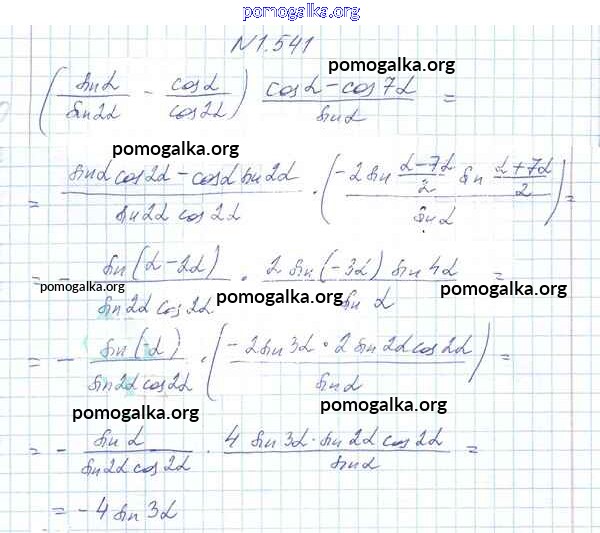 pomogalka.org
N 1.541
pomogalka.org
(sin α / sin 2α − cos α / cos 2α) (cos α − cos 7α) / sin α =
pomogalka.org
pomogalka.org
= (sin α cos 2α − cos α sin 2α) / (sin 2α cos 2α) · (−2 sin (α − 7α)/2 sin (α + 7α)/2) / sin α =
= − sin (α − 2α) / (sin 2α cos 2α) · 2 sin (−3α) sin 4α / sin α =
pomogalka.org pomogalka.org pomogalka.org
= − sin (−α) / (sin 2α cos 2α) · (−2 sin 3α · 2 sin 2α cos 2α / sin α) =
pomogalka.org pomogalka.org
= − sin α / (sin 2α cos 2α) · 4 sin 3α · sin 2α cos 2α / sin α =
= −4 sin 3α